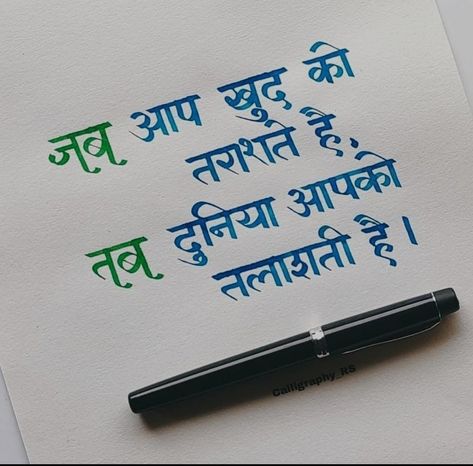 जब आप खुद को
तराशते है,
तब दुनिया आपको
तलाशती है।
Calligraphy_RS